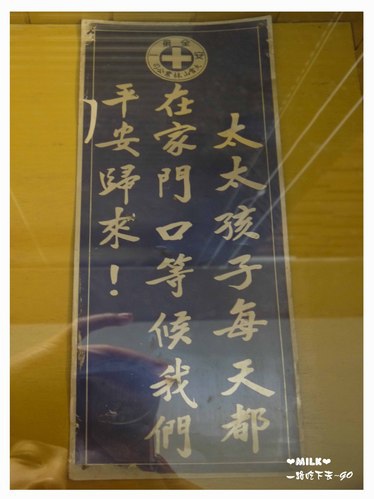 安全第一
太太孩子每天都
在家門口等候我們
平安歸來！
❤MILK❤
一路吃下去-go